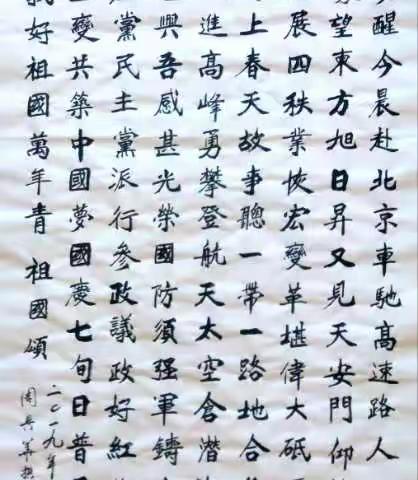 醒今晨赴北京車馳高速路人
望東方旭日昇又見天安門仰
展四秩業恢宏變革堪偉大砥
上春天故事聽一帶一路地合
進高峰勇攀登航天太空倉潛
興吾感甚光榮國防須强軍鑄
黨民主黨派行參政議政好紅
變共築中國夢國慶七旬日普
好祖國萬年青 祖國頌
二〇一九年